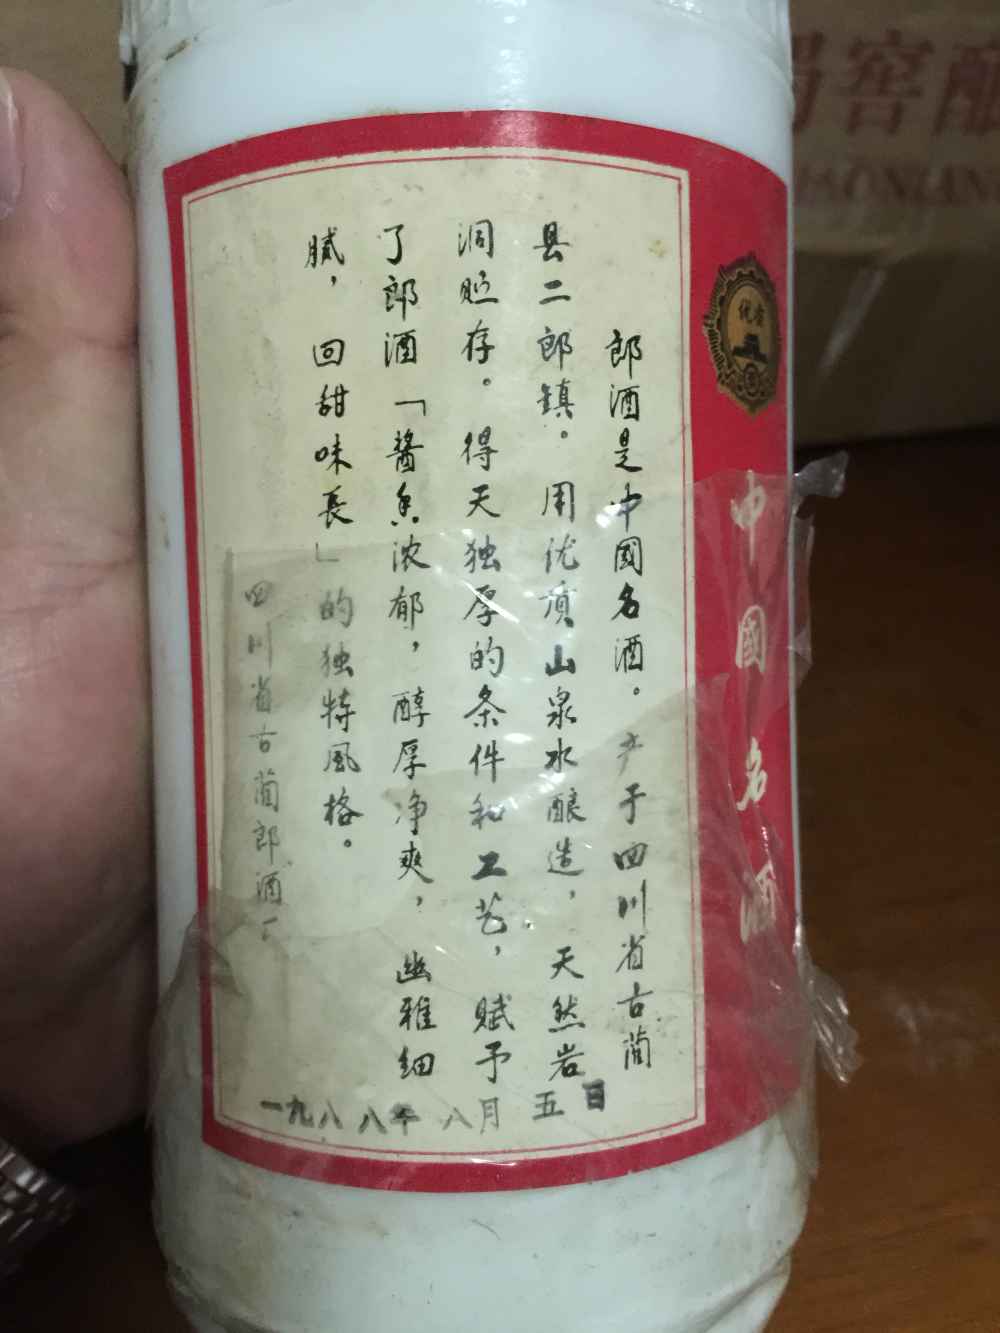 郎酒是中國名酒。产于四川省古蔺
县二郎镇。用优质山泉水酿造，天然岩
洞贮存。得天独厚的条件和工艺，赋予
了郎酒「酱香浓郁，醇厚净爽，幽雅细
腻，回甜味長」的独特風格。
四川省古蔺郎酒厂
一九八八年八月五日
优质
中國名酒
窖釀